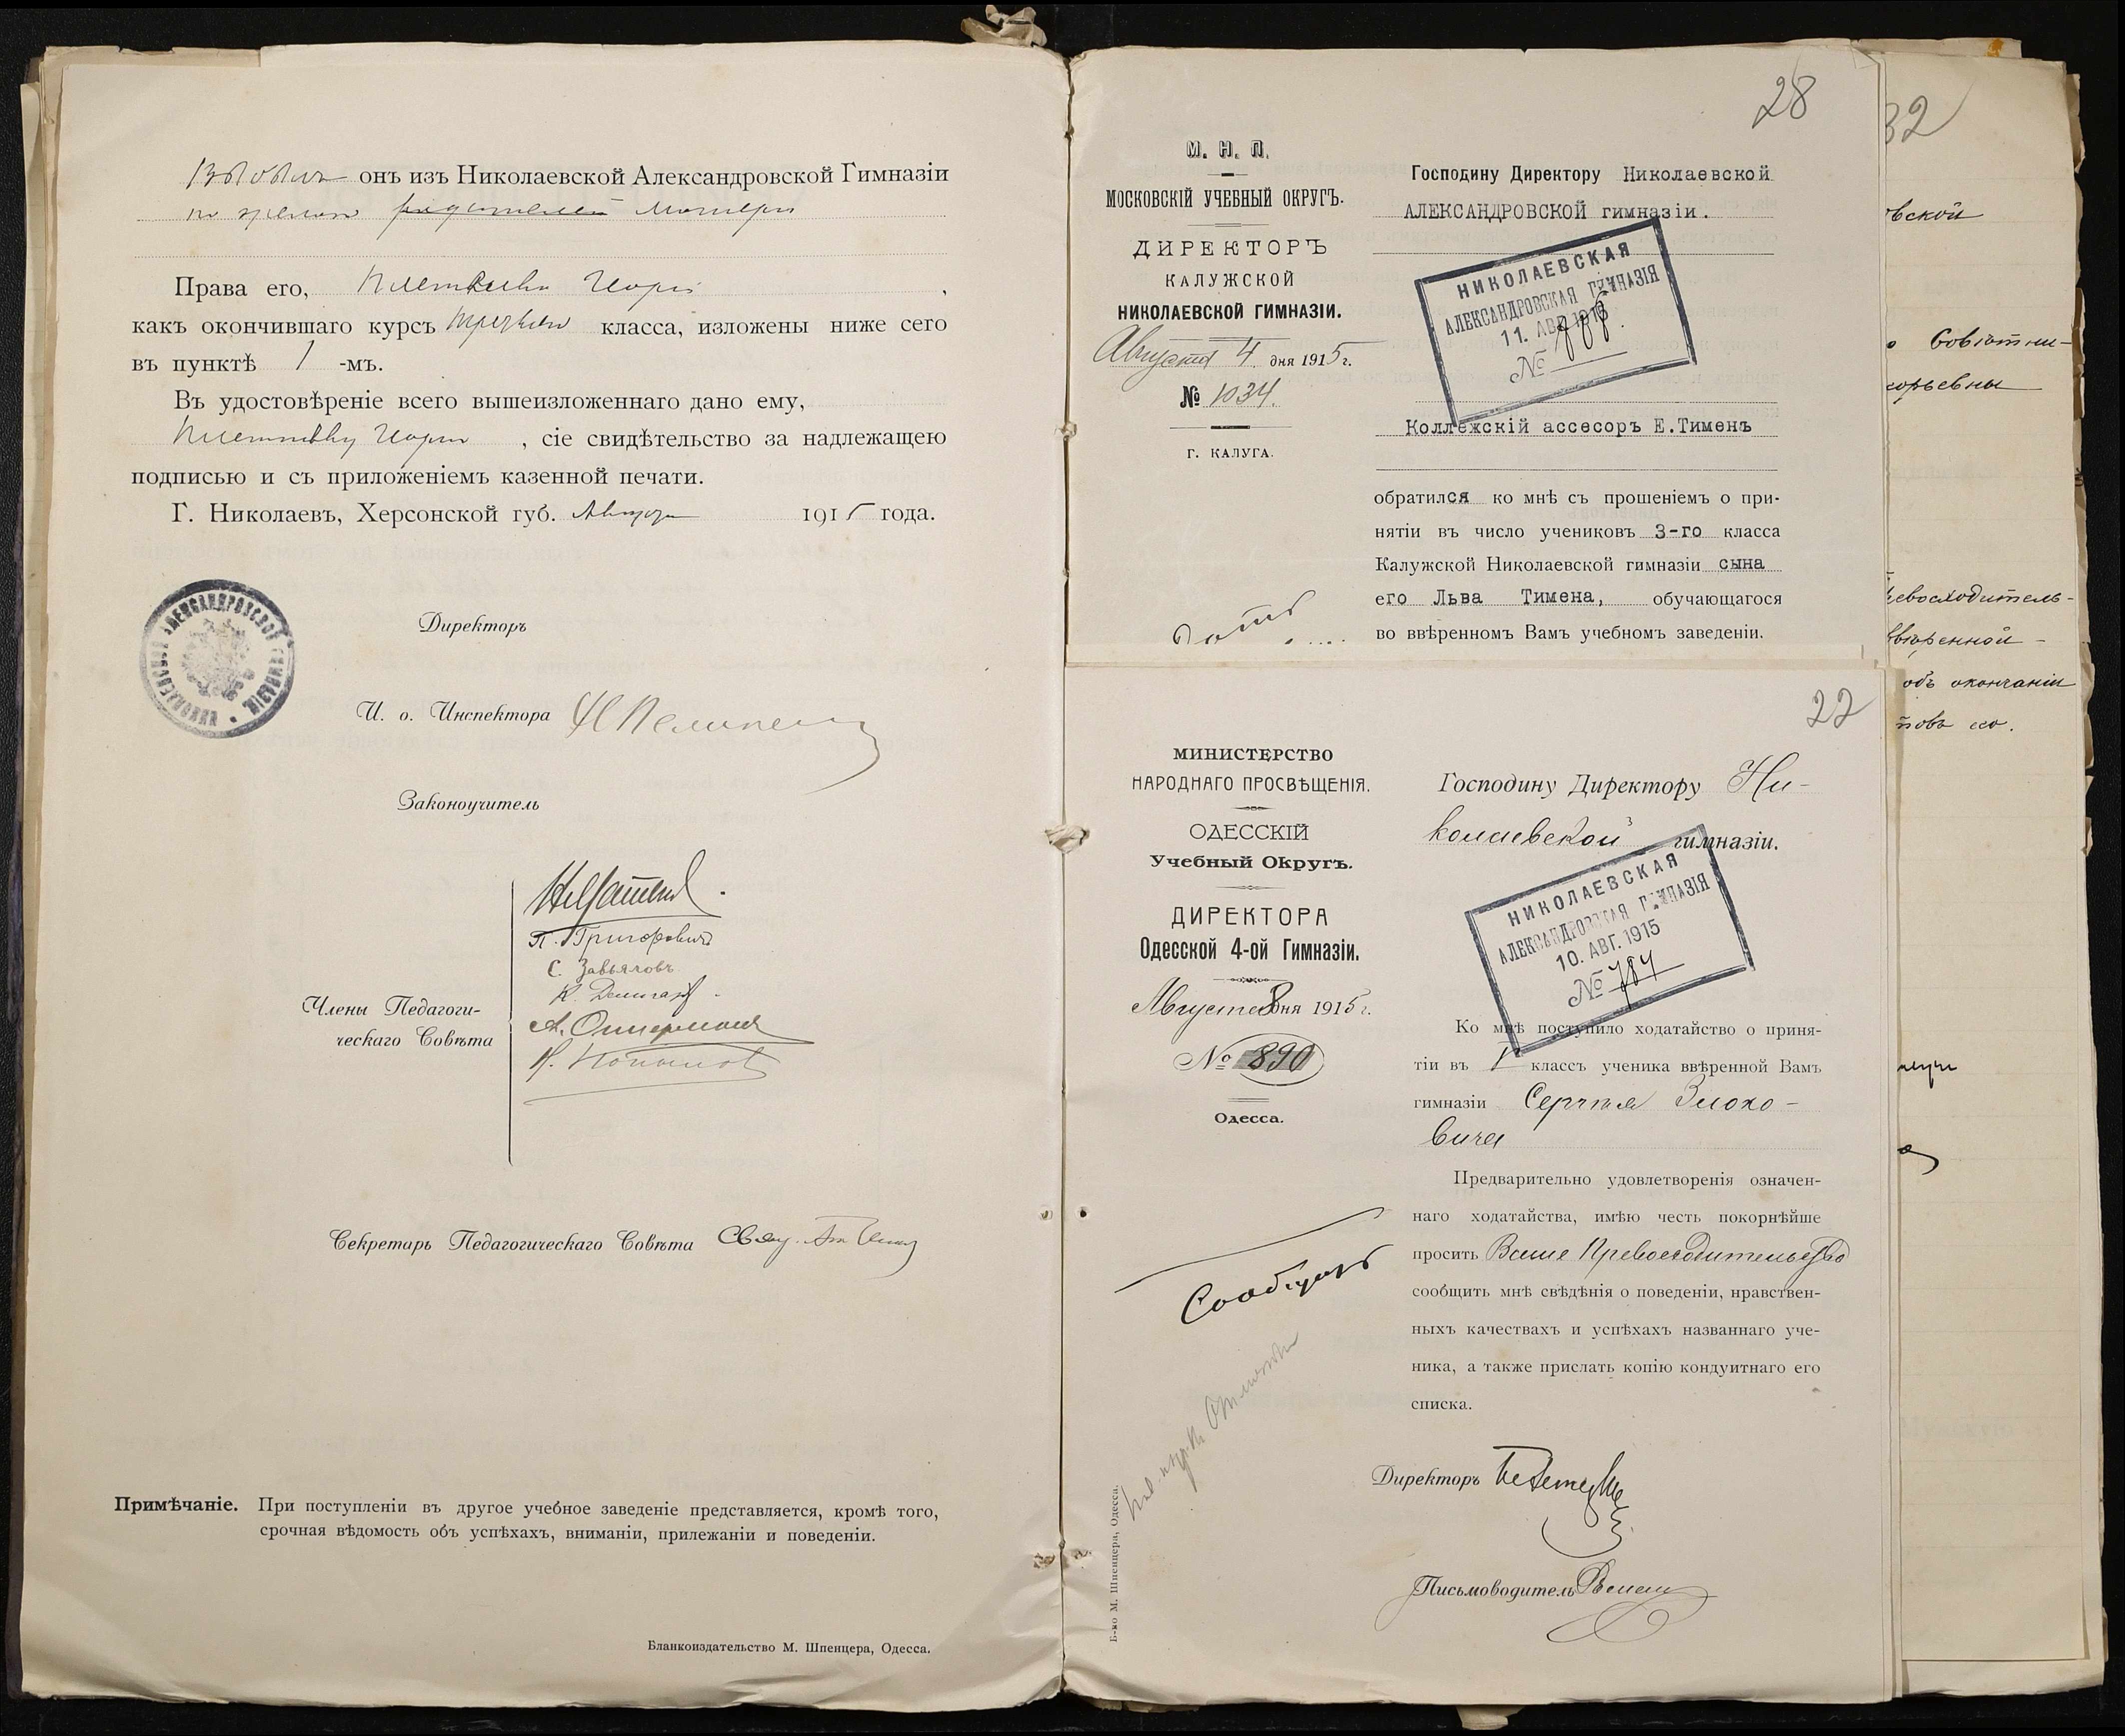 Выбылъ онъ изъ Николаевской Александровской Гимназіи
по желан родителей матери
Права его,
какъ окончившаго курсъ класса, изложены ниже сего
въ пунктѣ 1 -мъ.
Въ удостовѣреніе всего вышеизложеннаго дано ему,
, сіе свидѣтельство за надлежащею
подписью и съ приложеніемъ казенной печати.
Г. Николаевъ, Херсонской губ. 1915 года.
НИКОЛАЕВСКОЙ АЛЕКСАНДРОВСКОЙ ГИМНАЗІИ
Директоръ
И. о. Инспектора
Законоучитель
П. Григоровичъ
С. Завьяловъ
Члены Педагоги-
ческаго Совѣта
Секретарь Педагогическаго Совѣта
Примѣчаніе. При поступленіи въ другое учебное заведеніе представляется, кромѣ того,
срочная вѣдомость объ успѣхахъ, вниманіи, прилежаніи и поведеніи.
Бланкоиздательство М. Шпенцера, Одесса.
28
М. Н. П.
МОСКОВСКІЙ УЧЕБНЫЙ ОКРУГЪ.
ДИРЕКТОРЪ
КАЛУЖСКОЙ
НИКОЛАЕВСКОЙ ГИМНАЗІИ.
Августа 4 дня 1915 г.
№ 1034.
Г. КАЛУГА.
Господину Директору Николаевской
АЛЕКСАНДРОВСКОЙ гимназіи.
НИКОЛАЕВСКАЯ
АЛЕКСАНДРОВСКАЯ ГИМНАЗІЯ
11. АВГ. 1915
№
Коллежскій ассесоръ Е.Тименъ
обратился ко мнѣ съ прошеніемъ о при-
нятіи въ число учениковъ 3-го класса
Калужской Николаевской гимназіи сына
его Льва Тимена, обучающагося
во ввѣренномъ Вамъ учебномъ заведеніи.
22
МИНИСТЕРСТВО
НАРОДНАГО ПРОСВѢЩЕНІЯ.
ОДЕССКІЙ
Учебный Округъ.
ДИРЕКТОРА
Одесской 4-ой Гимназіи.
Августа 8 дня 1915 г.
№ 890
Одесса.
Господину Директору Ни-
колаевской гимназіи.
НИКОЛАЕВСКАЯ
АЛЕКСАНДРОВСКАЯ ГИМНАЗІЯ
10. АВГ. 1915
№ 784
Ко мнѣ поступило ходатайство о приня-
тіи въ классъ ученика ввѣренной Вамъ
гимназіи Сергѣя Злохо-
вича
Предварительно удовлетворенія означен-
наго ходатайства, имѣю честь покорнѣйше
просить Ваше Превосходительство
сообщить мнѣ свѣдѣнія о поведеніи, нравствен-
ныхъ качествахъ и успѣхахъ названнаго уче-
ника, а также прислать копію кондуитнаго его
списка.
Директоръ
Письмоводитель
Б-во М. Шпенцера, Одесса.
32
вской
о Совѣтни-
еорьевны
евосходитель-
ввѣренной
объ окончаніи
товъ его.